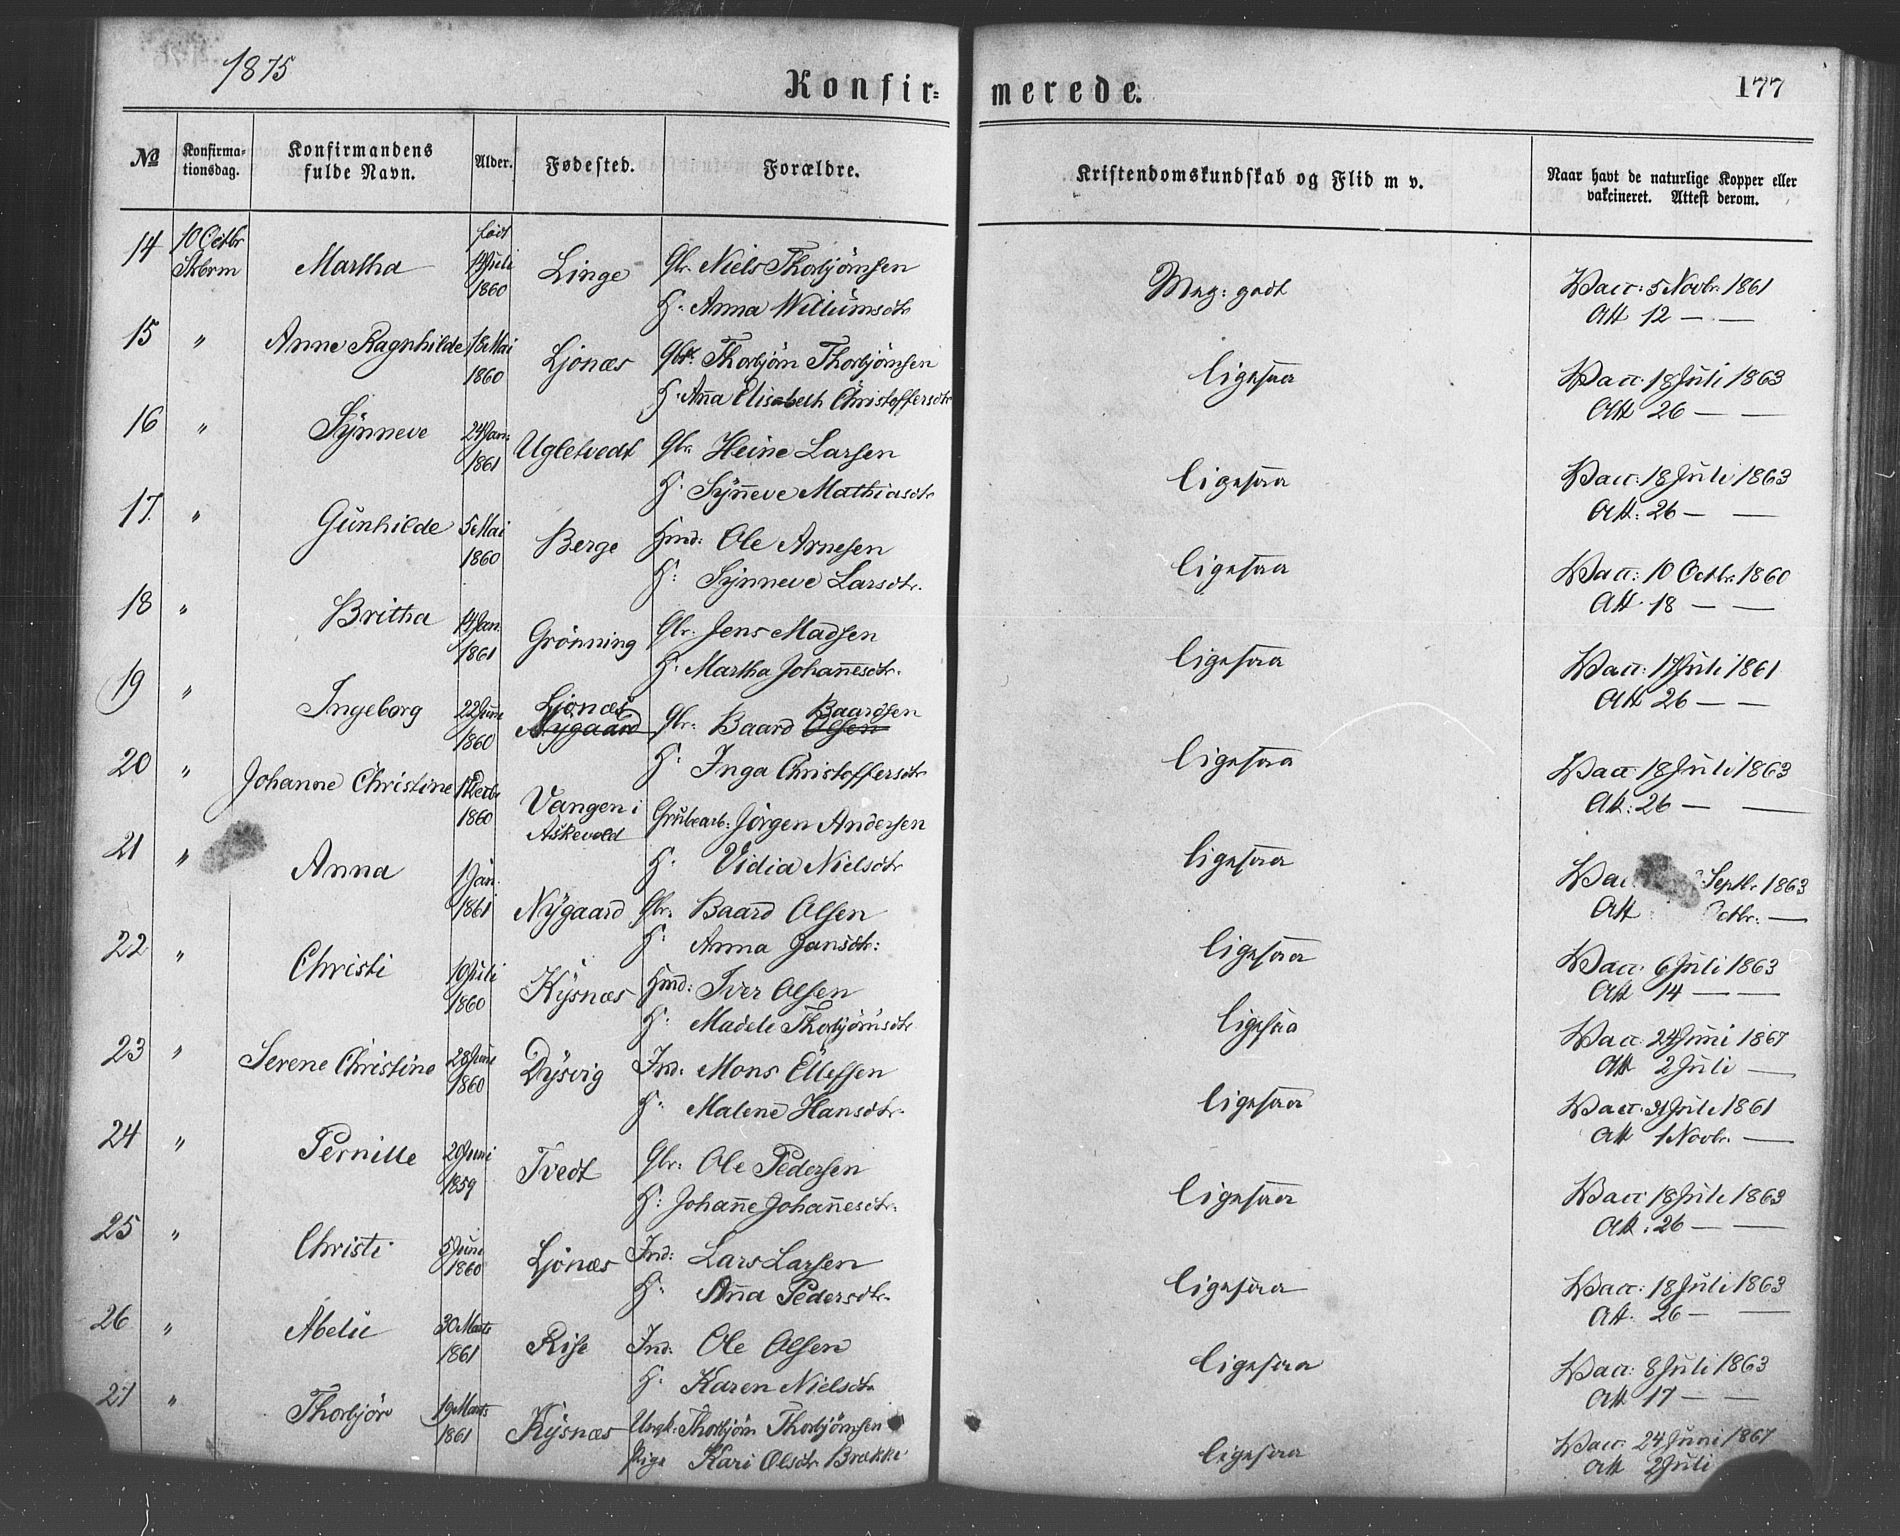 1875
Konfir=
merede.
177
№
Konfirma-
tionsdag.
Konfirmandens
fulde Navn.
Alder.
Fødested.
Forældre.
Kristendomskundskab og Flid m v.
Naar havt de naturlige Kopper eller
vakcineret. Attest derom.
født
14 10 Octbr Martha 14 Juli Linge Gbr. Niels Thorbjörnsen Mng: godt Vacc: 5 Novbr. 1861
1860 H. Anna Willumsdtr Att 12 — —
15 " Anne Ragnhilde 18 Mai Ljonæs Gbr. Thorbjörn Thorbjörnsen ligesaa Vacc. 18 Juli 1863
1860 H. Anna Elisabeth Christoffersdtr Att 26 — —
16 " Synneve 24 Jan. Ugletvedt Gbr. Heine Larsen ligesaa Vacc: 18 Juli 1863
1861 H. Synneve Mathiasdtr Att: 26 — —
17. " Gunhilde 5 Mai Berge Hmd: Ole Arnesen ligesaa Vacc: 10 Octbr. 1860
1860 H: Synneve Larsdtr. Att 18 — —
18 " Britha 14 Jan. Grönning Gbr. Jens Madsen ligesaa Vacc: 17 Juli 1861
1861 H. Martha Johannesdtr. Att 26 — —
Ljonæs Baardsen
19 " Ingeborg 22 Juni Nygaard Gbr. Baard Olsen ligesaa Vacc. 18 Juli 1863
1860 H. Inga Christoffersdtr Att: 26 — —
20 " Johanne Christine Vangen i Grubearb: Jörgen Andersen ligesaa Vacc Septbr 1863
1860 Askevold H. Vidia Nielsdtr Att Octbr. —
21 " Anna 1 Jan. Nygaard Gbr. Baard Olsen ligesaa Vacc. 6 Juli 1863
1861 H. Anna Jansdtr: Att 14 — —
22 " Christi 10 Juli Kysnæs Hmd: Iver Olsen ligesaa Vacc. 24 Juni 1867
1860 H. Madele Thorbjörnsdtr Att 2 Juli —
23 " Serene Christine 28 Juni Dysvig Ind: Mons Ellefsen ligesaa Vacc. 31 Juli 1861
1860 H. Malene Hansdtr. Att 1 Novbr. —
24 " Pernille 20 Juni Tvedt Gbr. Ole Pedersen ligesaa Vacc 18 Juli 1863
1859 H: Johanne Johannesdtr. Att. 26 — —
25 " Christi 5 Juni Ljonæs Ind: Lars Larsen ligesaa Vacc: 18 Juli 1863
1860 H. Anna Pedersdtr. Att. 26 — —
26 " Abelu 30 Marts Rise Ind. Ole Olsen ligesaa Vacc: 8 Juli 1863
1861 H. Karen Nielsdtr Att 17 — —
27 " Thorbjör 19 Marts Kysnæs Ungk: Thorbjörn Thorbjörnsen ligesaa Vacc. 24 Juni 1867
1861 Pige Kari Olsdtr Brække Att 2 Juli